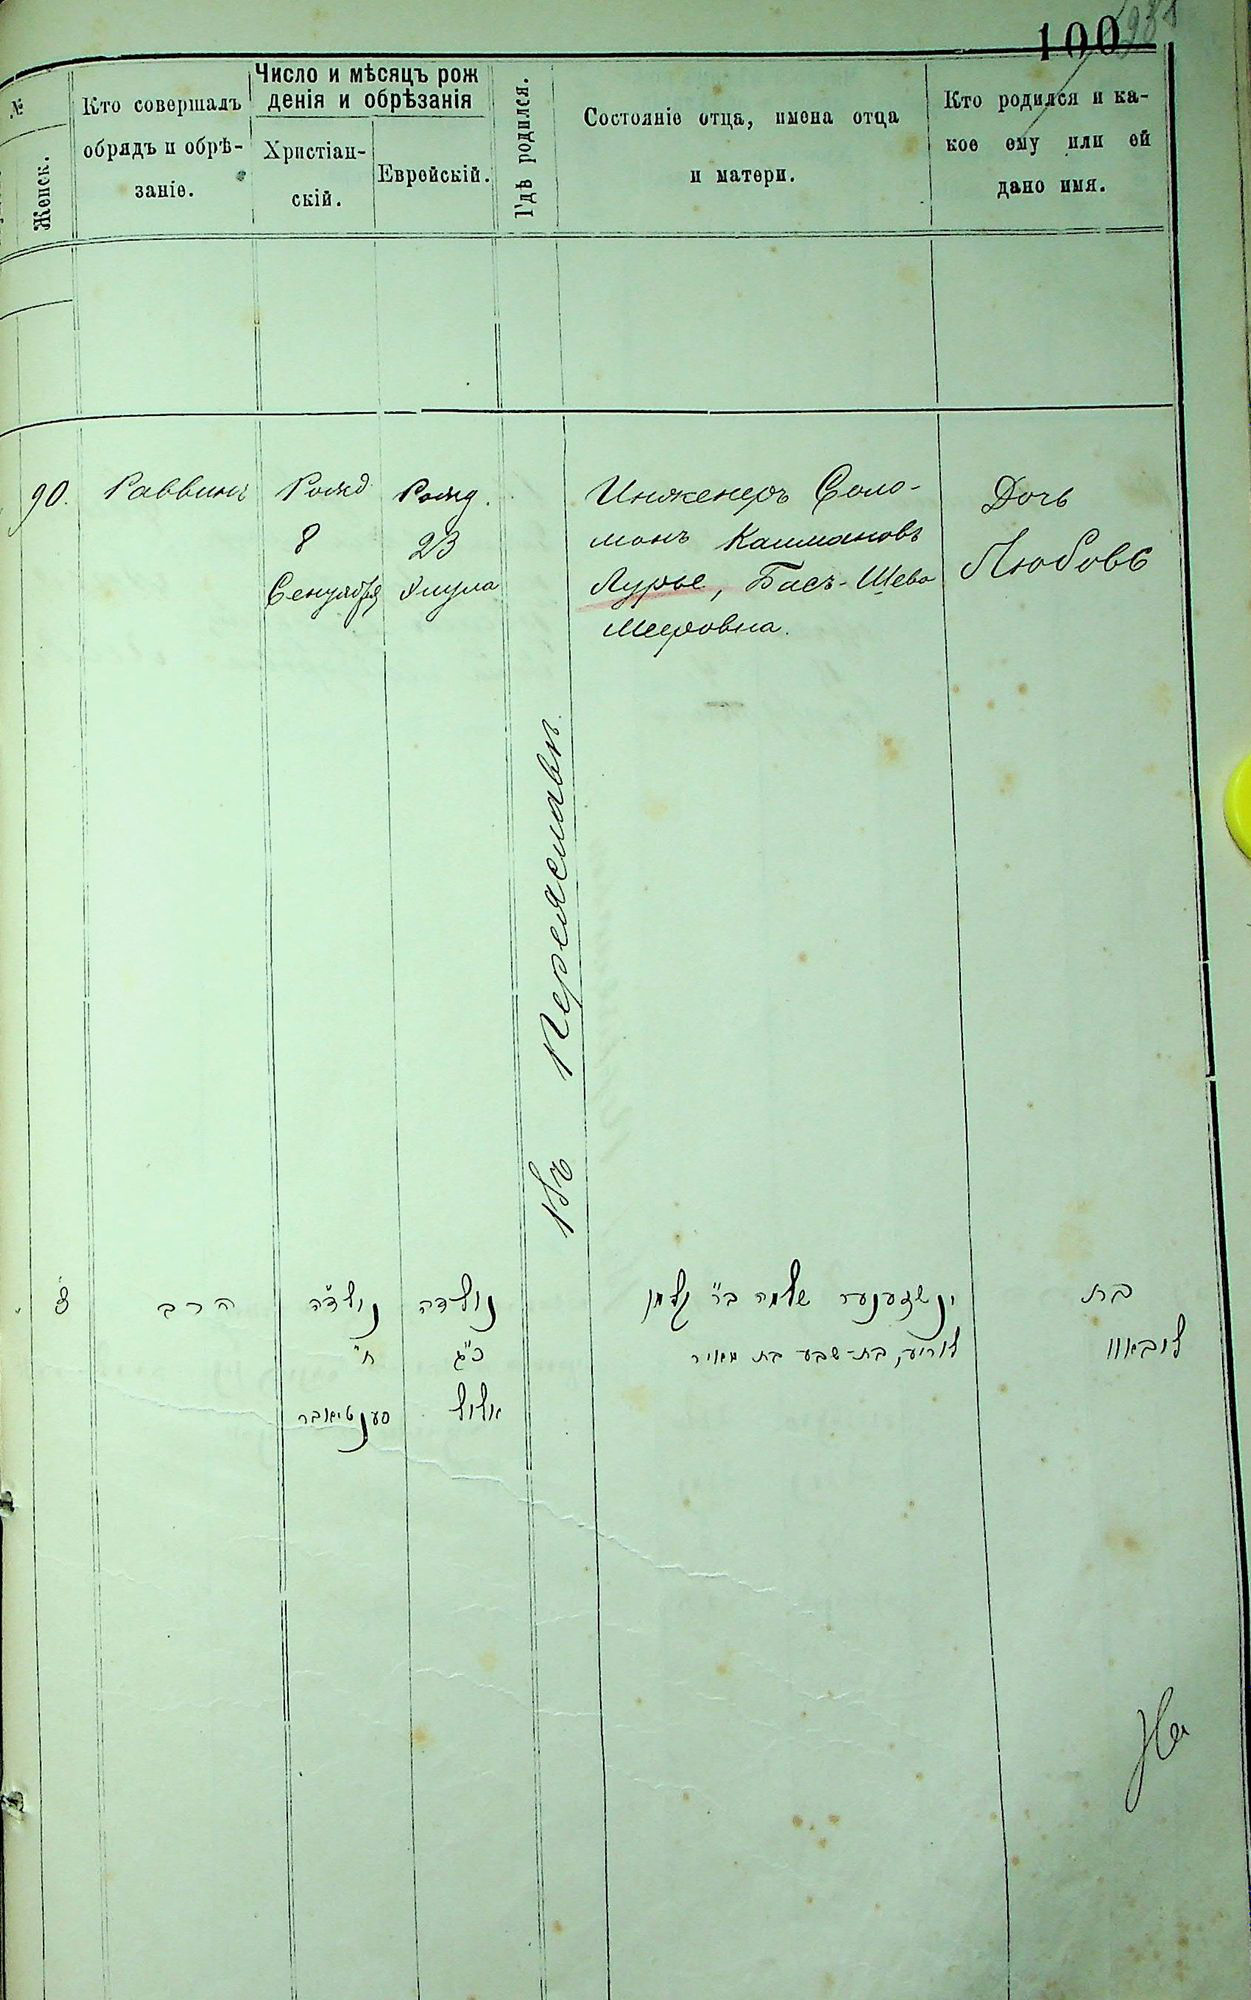 100
№
Женск.
Кто совершалъ
обрядъ и обрѣ-
заніе.
Число и мѣсяцъ рож
денія и обрѣзанія
Христіан-
скій.
Еврейскій.
Гдѣ родился.
Состояніе отца, имена отца
и матери.
Кто родился и ка-
кое ему или ей
дано имя.
90.
Раввинъ
Рожд
8
Сентября
Рожд.
23
Элула
Въ Переяславѣ
Инженеръ Соло-
монъ Калмановъ
Лурье, Басъ-Шева
Мееровна.
Дочь
Любовь
הרב
נולדה
ח'
סענטיאבר
נולדה
כ"ג
אלול
שלמה בר' קלמן
לוריע, בת-שבע בת מאיר
בת
ליובאוו